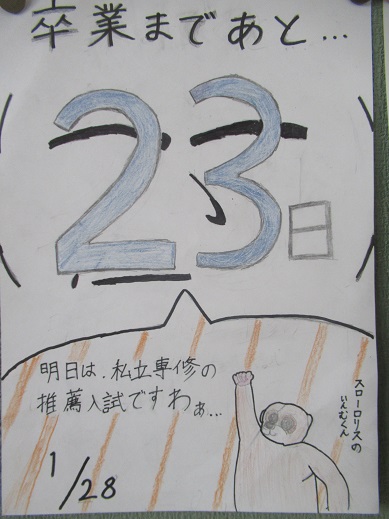 卒業まであと...
23日
明日は、私立専修の
推薦入試ですわぁ...
1/28
スローロリスの
いんむくん